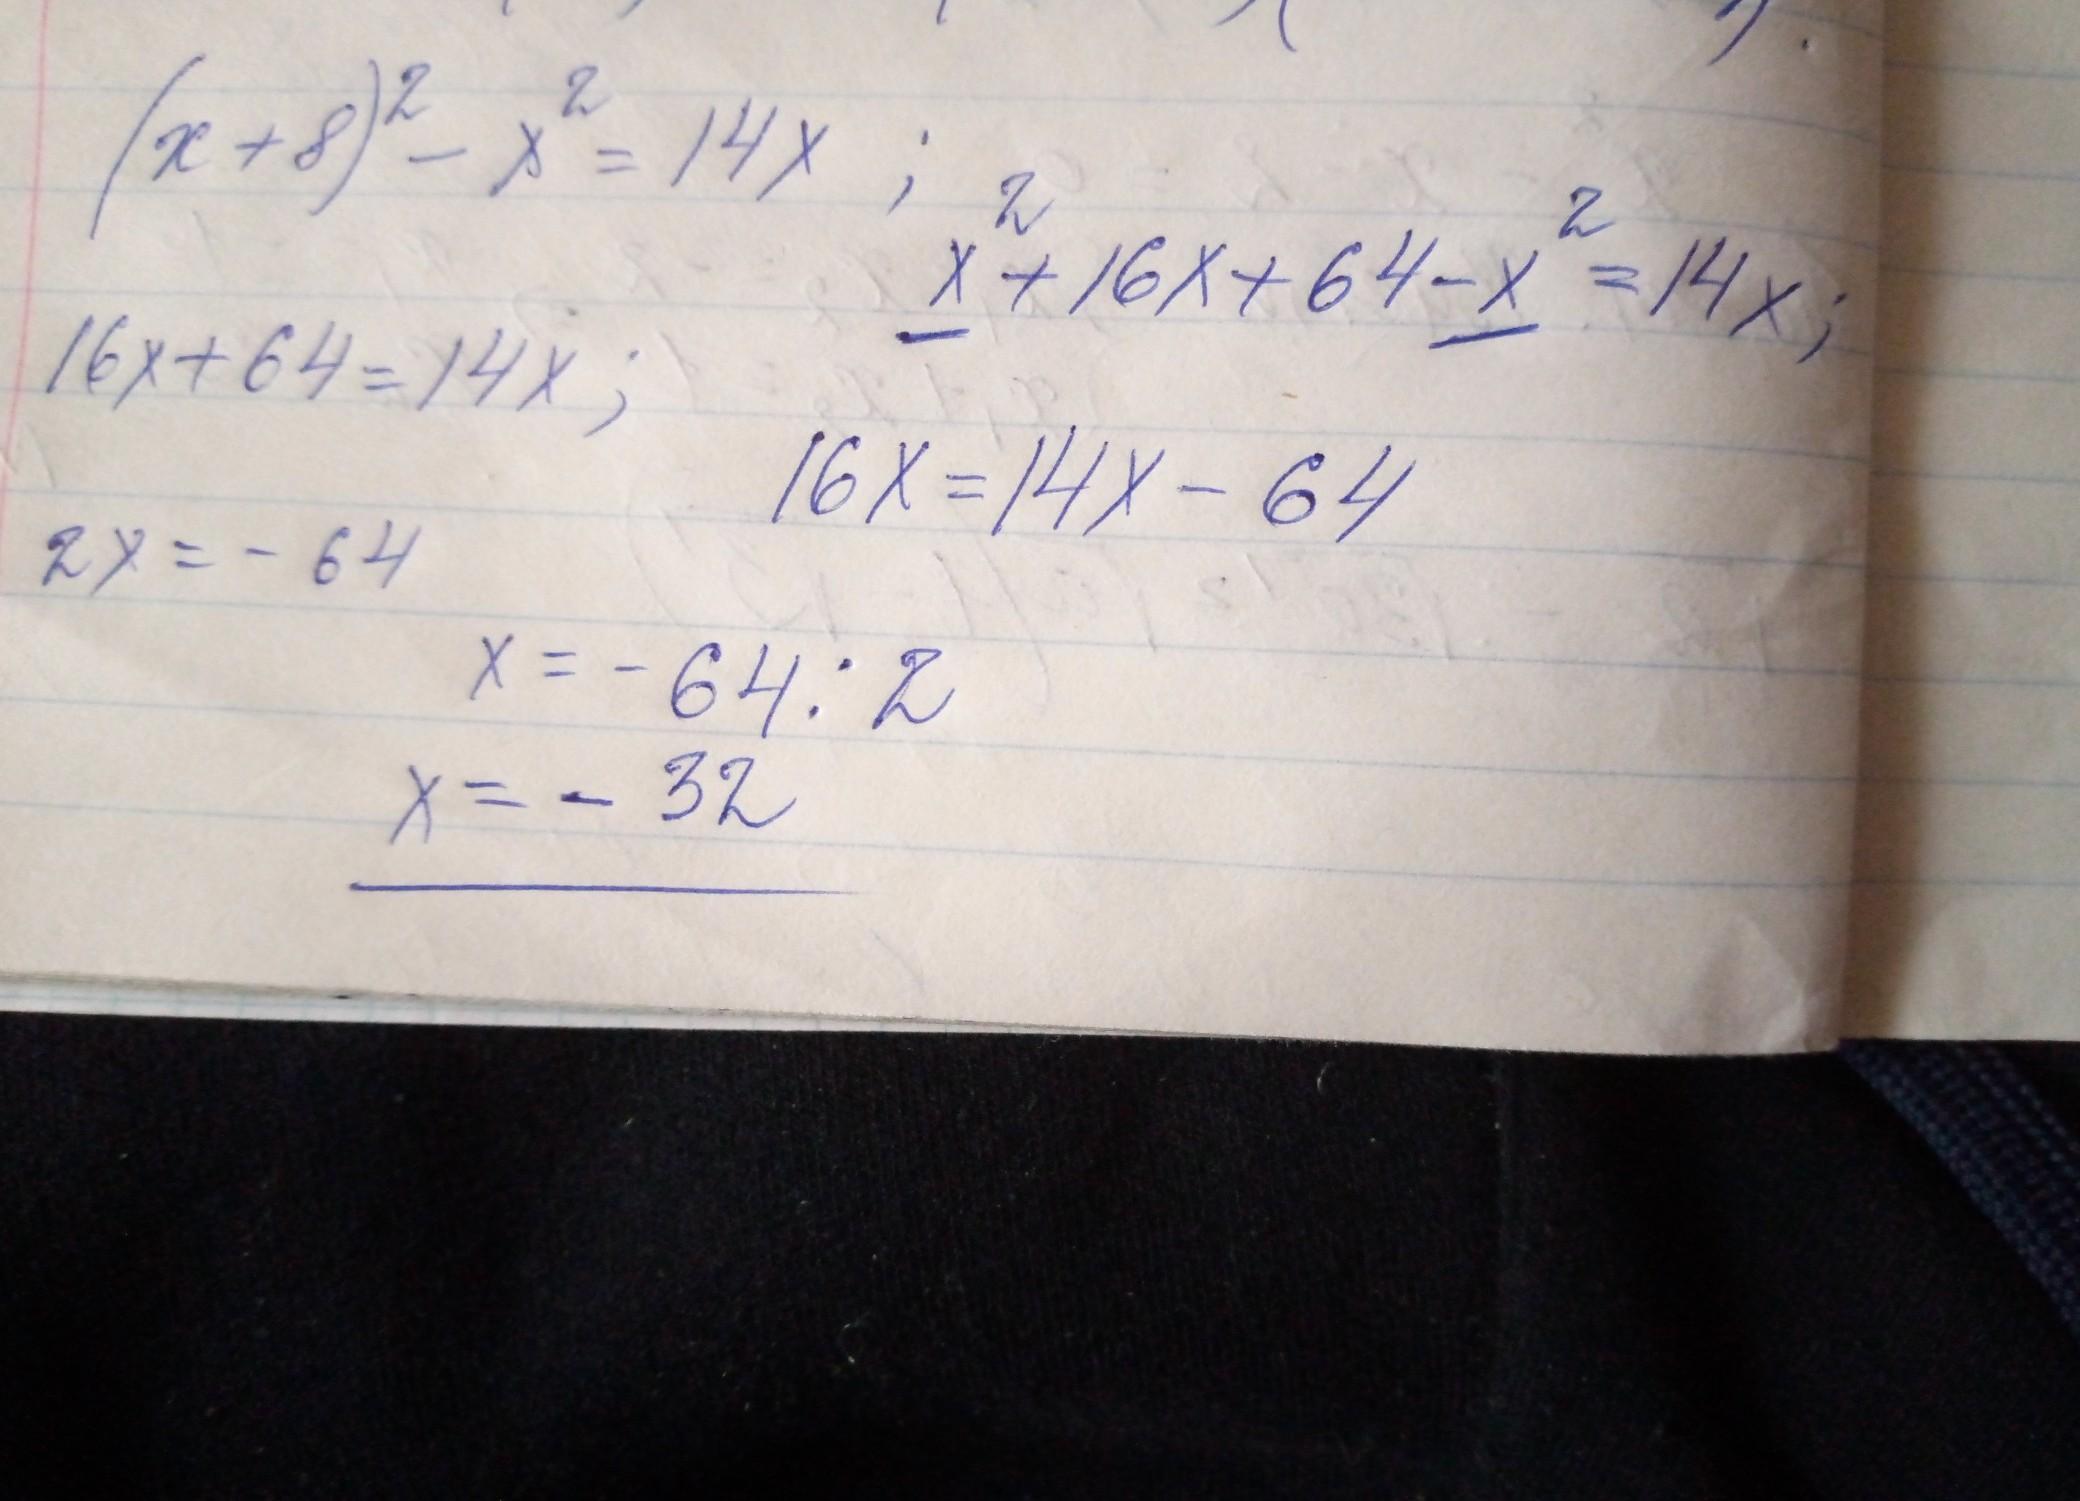 (x+8)² - x² = 14x ;
x² + 16x + 64 - x² = 14x ;
16x + 64 = 14x ;
16x = 14x - 64
2x = - 64
x = - 64 : 2
x = - 32